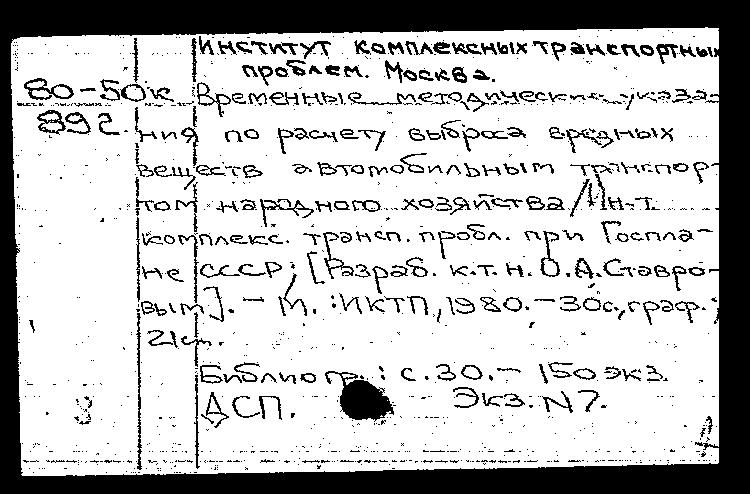 Институт комплексных транспортных
проблем. Москва.
80-50к Временные методические указа-
892 ния по расчету выброса вредных
веществ автомобильным транспор-
том народного хозяйства / Ин-т.
комплекс. трансп. пробл. при Госпла-
не СССР; [Разраб. к.т.н. О.А. Ставро-
вым]. - М.: ИКТП, 1980. - 30с., граф.;
21см.
Библиогр.: с.30. - 150 экз.
ДСП. Экз. N7.